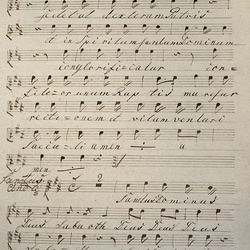 sedet ad dexteram Patris
et in spiritum sanctum Dominum
conglorificatur con=
fite=or unum Bap tis ma resur
recti=onem et vitam venturi
Saecu=li amen = a
men
Sanctus
Sanctus Dominus
Deus Sabaoth Deus Deus Deus